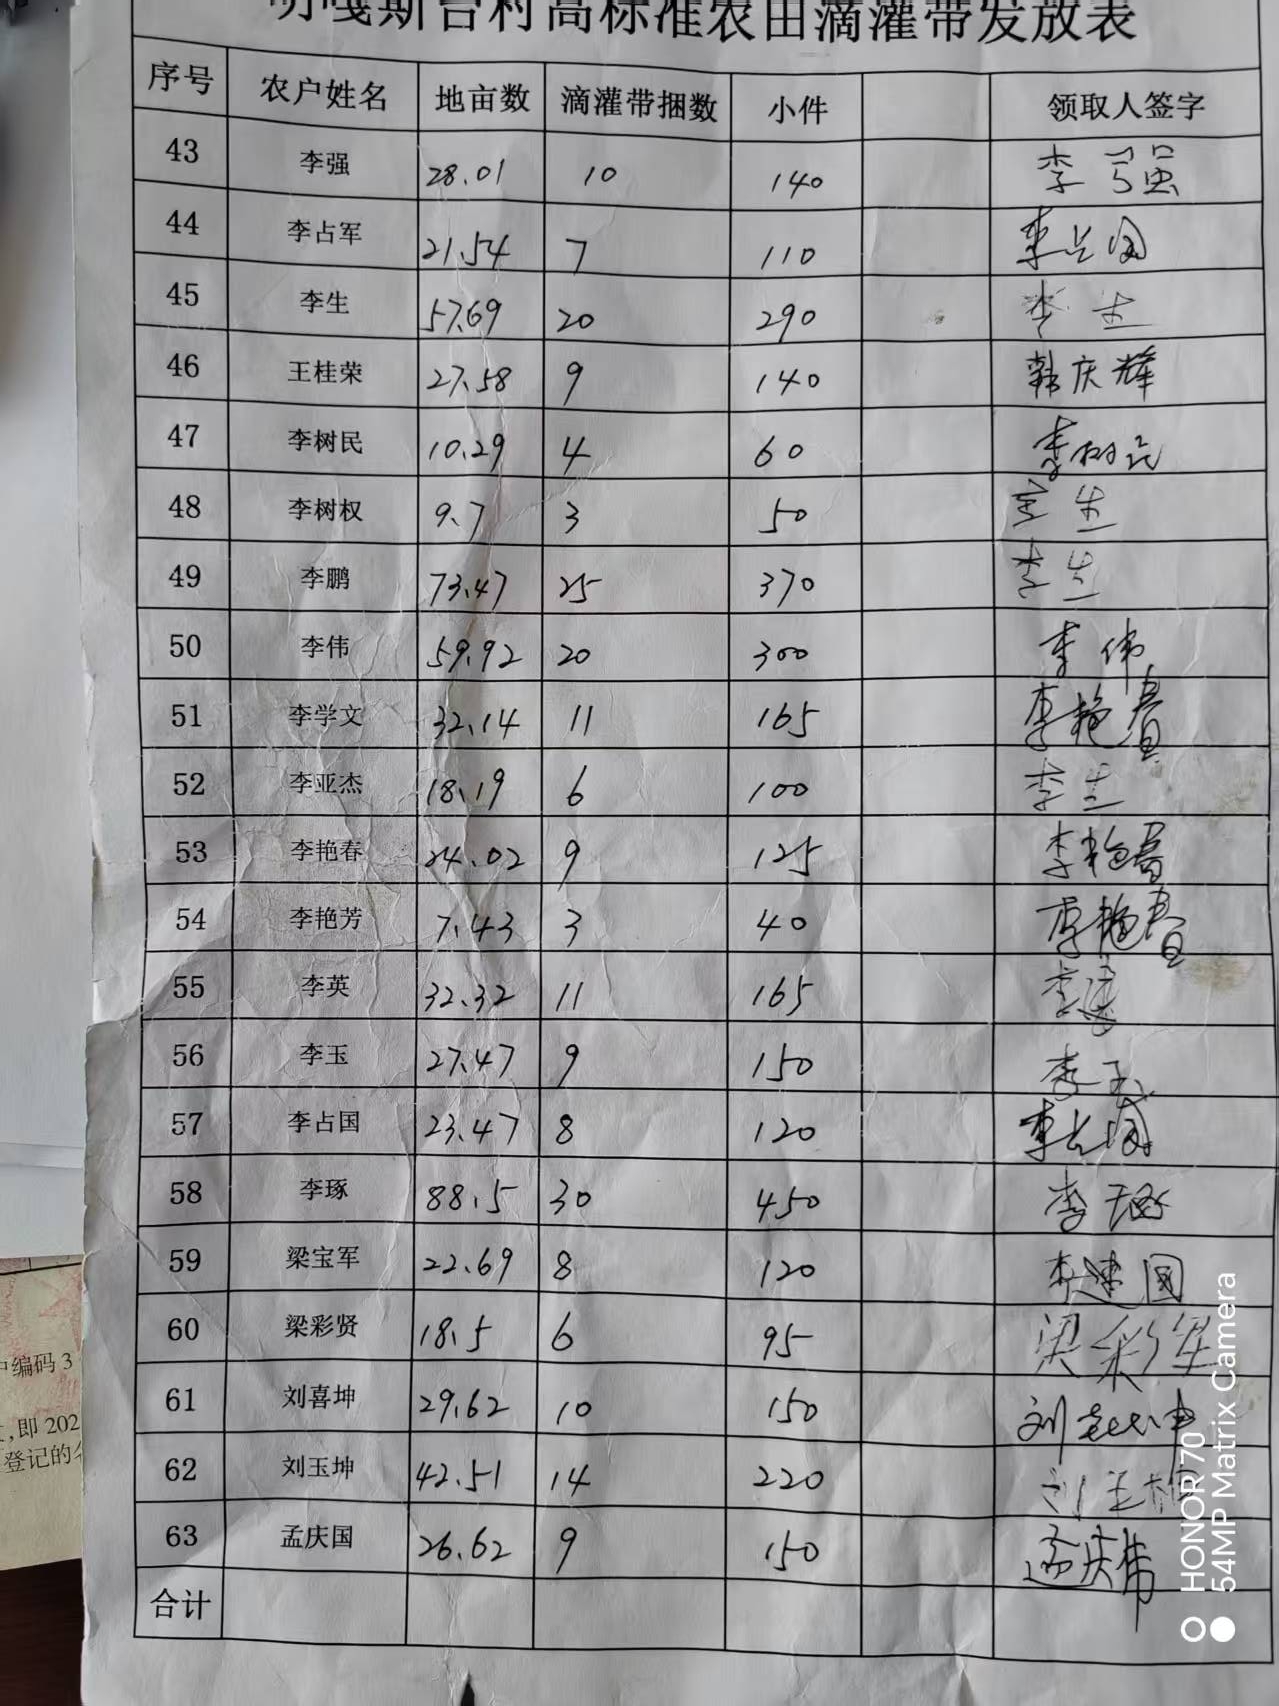 嘎斯台村高标准农田滴灌带发放表
序号 农户姓名 地亩数 滴灌带捆数 小件 领取人签字
43 李强 28.01 10 140 李强
44 李占军 21.54 7 110 李占国
45 李生 57.69 20 290 李生
46 王桂荣 27.58 9 140 韩庆辉
47 李树民 10.29 4 60 李树民
48 李树权 9.7 3 50 李生
49 李鹏 73.47 25 370 李生
50 李伟 59.92 20 300 李伟
51 李学文 32.14 11 165 李艳春
52 李亚杰 18.19 6 100 李生
53 李艳春 24.02 9 125 李艳春
54 李艳芳 7.43 3 40 李艳春
55 李英 32.32 11 165 李
56 李玉 27.47 9 150 李玉
57 李占国 23.47 8 120 李占国
58 李琢 88.5 30 450 李琢
59 梁宝军 22.69 8 120 李建国
60 梁彩贤 18.5 6 95 梁彩
61 刘喜坤 29.62 10 150 刘喜坤
62 刘玉坤 42.51 14 220 刘玉坤
63 孟庆国 26.62 9 150 孟庆
合计
编码 3
,即 202
登记的
HONOR 70
54MP Matrix Camera